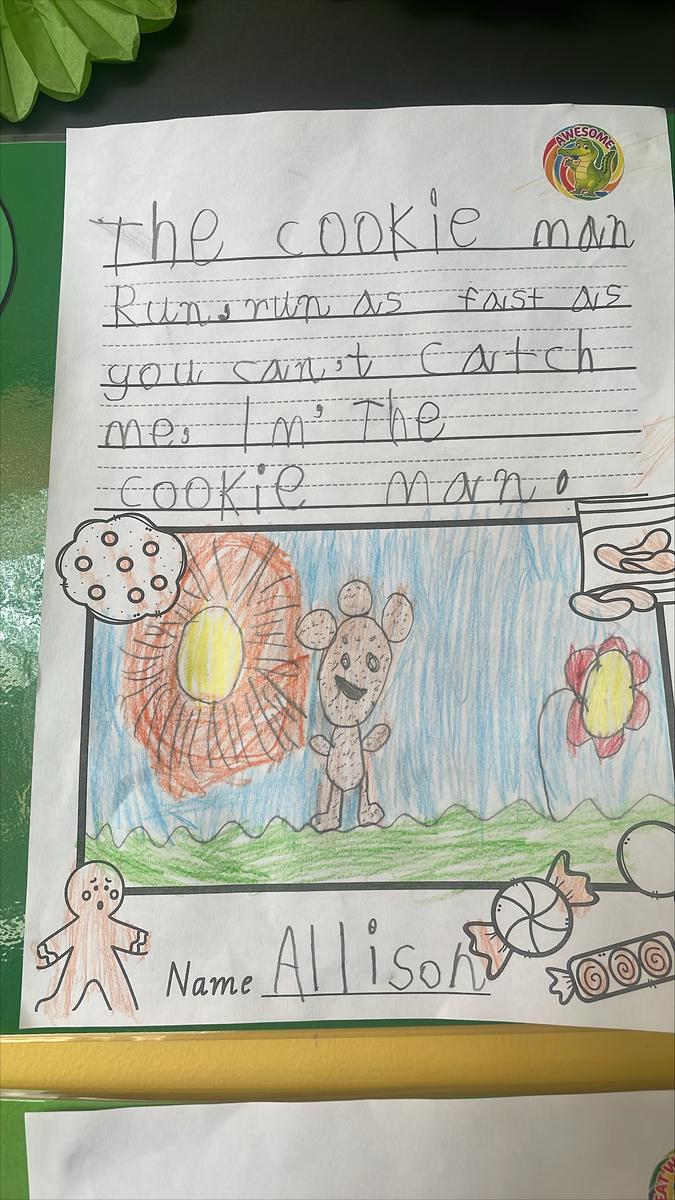 AWESOME
The cookie man
Run, run as fast as
you can,t catch
me, Im' The
cookie man.
Name Allison